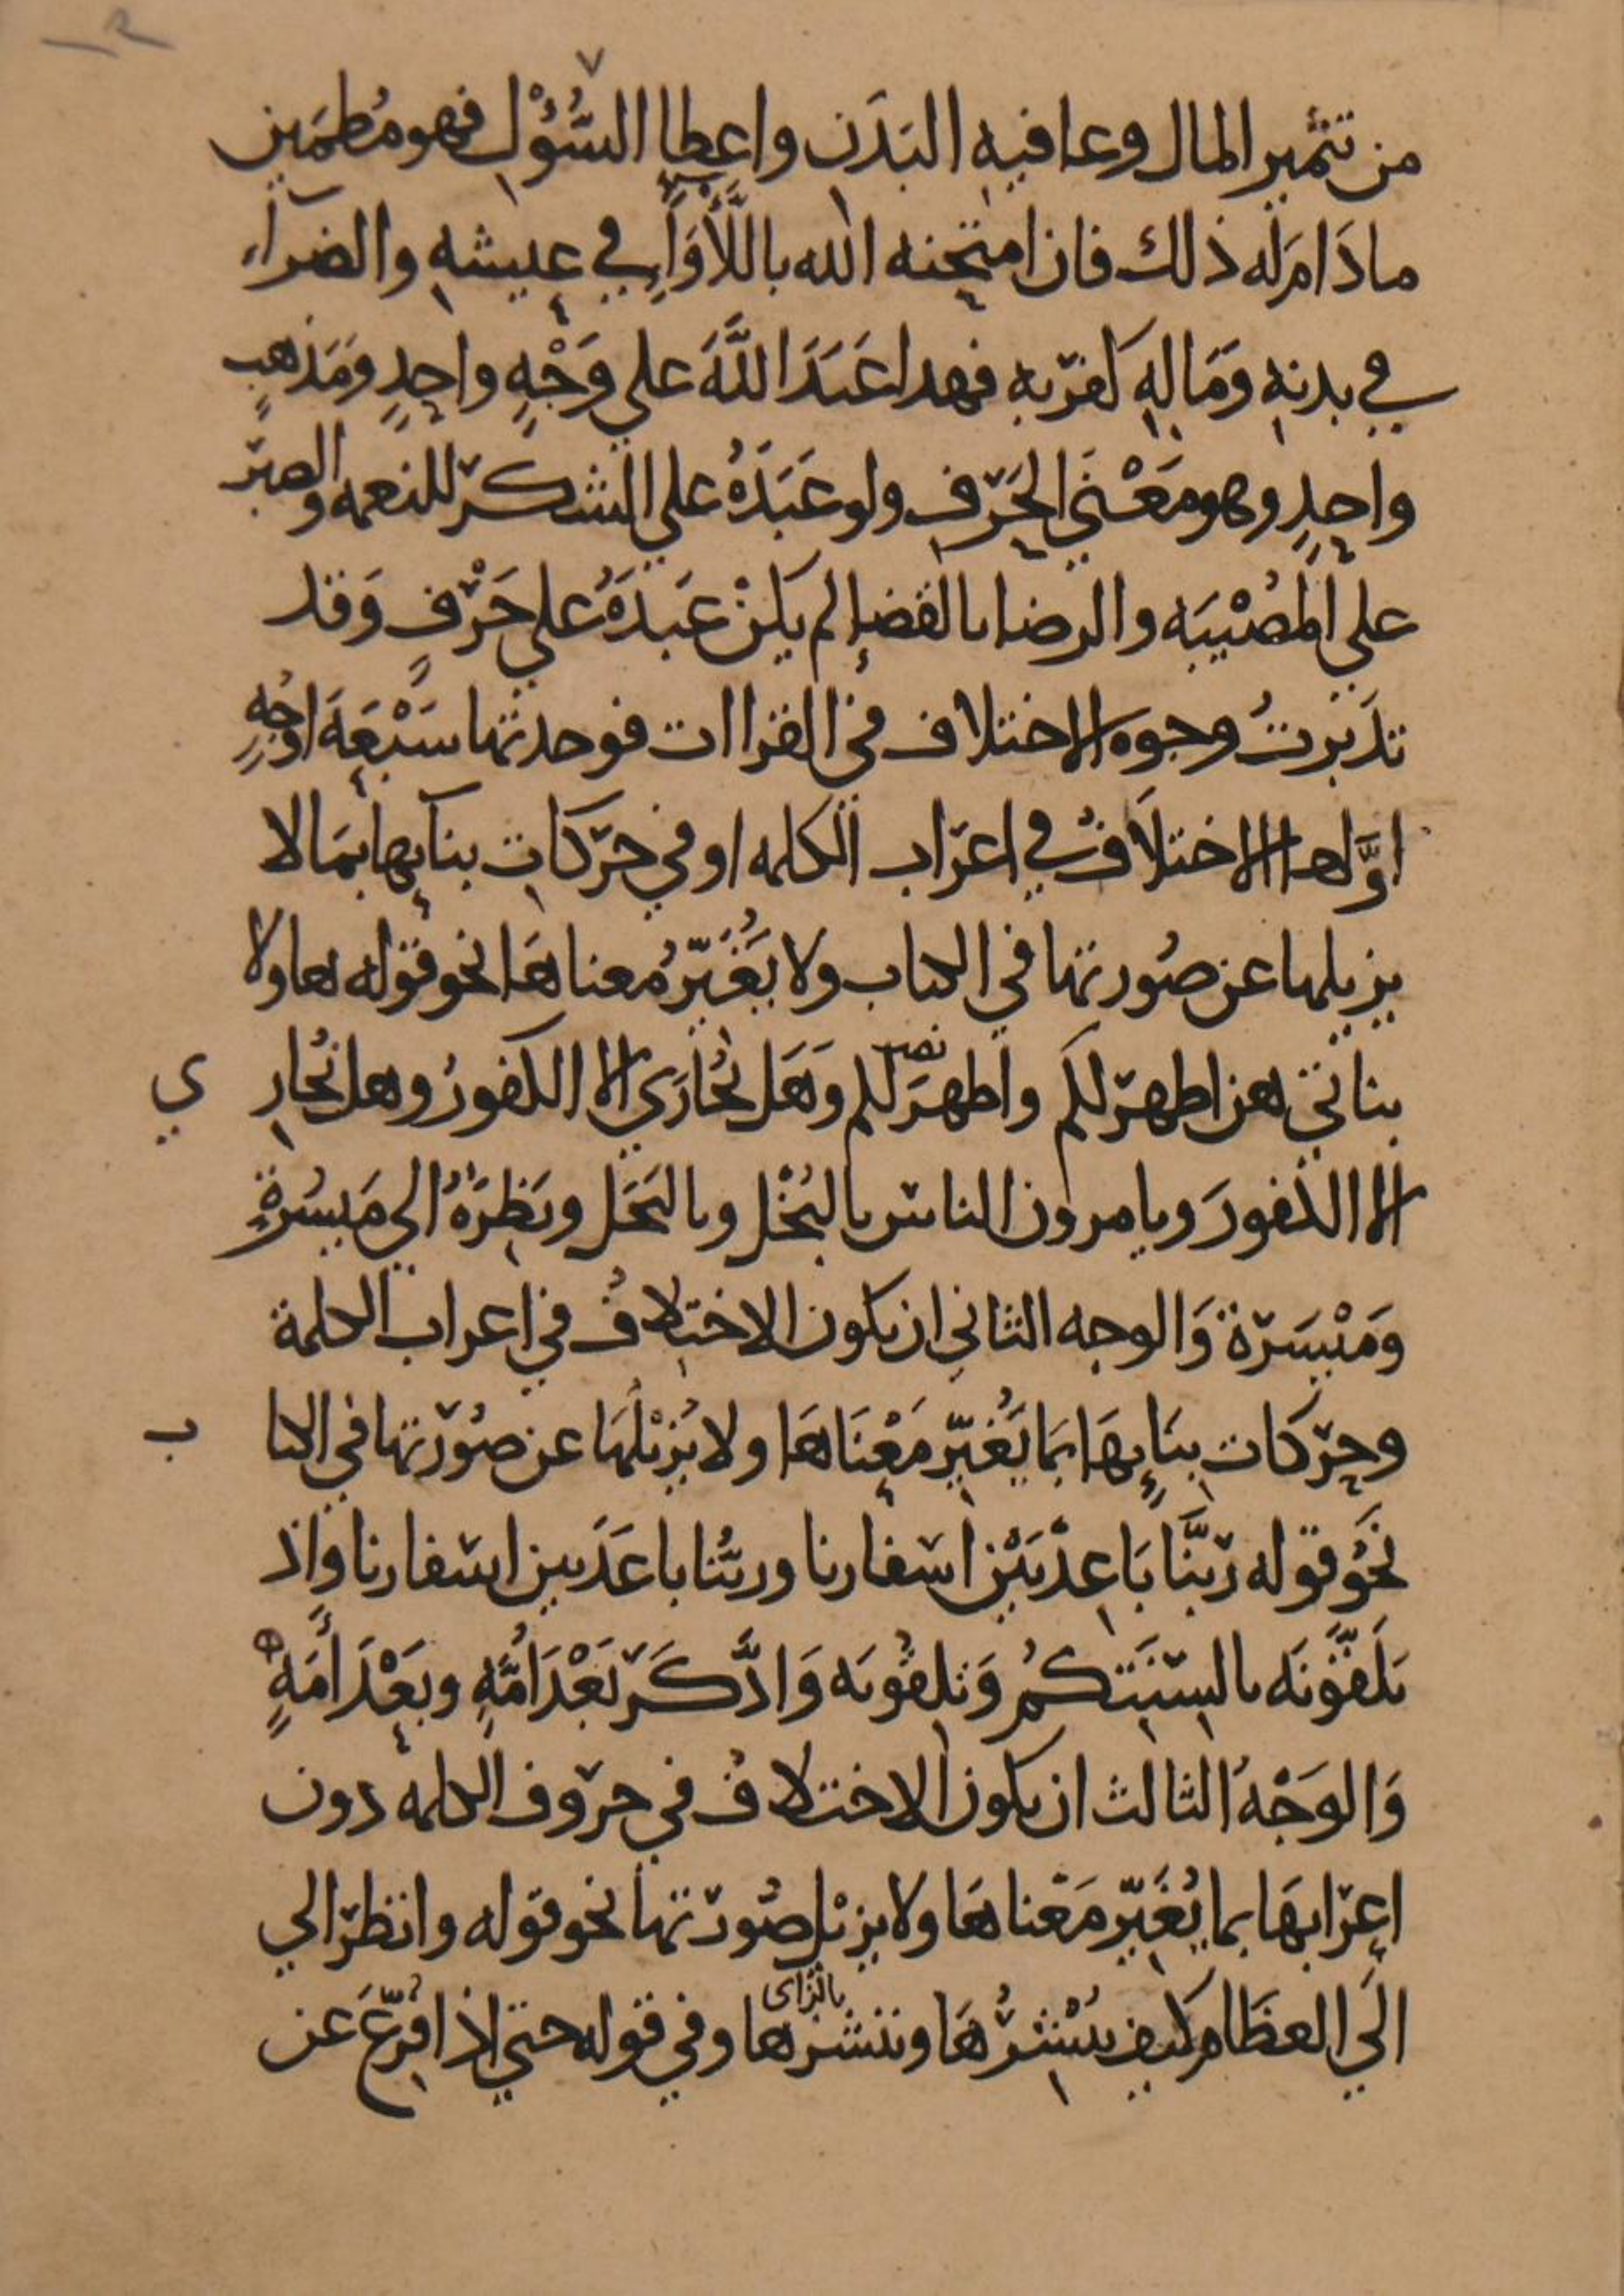 ١٢
٧
من تثمير المال وعافيه البَدَن واعطا السُّؤْل فهو مُطمَين
مادَامَ له ذلك فان امتحنه الله باللَّأْوَاءِ في عيشهِ والضرآء
في بدنهِ وَمَالِهِ كفر به فهدا عَبَدَ اللَّهَ علي وَجْهٍ واحِدٍ وَمَذهبٍ
واحِدٍ وهو مَعْنَي الحَرْف ولو عَبَدَهُ علي الشكر للنعمه والصبر
علي المُصْيبَه والرضا بالقضإ لم يكنْ عَبَدَهُ علي حَرْفٍ وَقد
تدَبّرتُ وجوه الاختلاف في القراات فوجدتها سَبْعَةَ اوْجُهٍ
اوَّلها الاختلَافُ في اعراب الكلمه او في حركات بنآيها بمَا لا
يزيلها عن صُورتها في الكتاب ولا يُغَيّرُ معناهَا نحو قوله هاولا
بناتي هن اطهرُ لكم واطهرَ لكم وَهَل نُجازي الا الكفورُ وهل نُجازِ ي
نصب
الا الكفورَ ويامرون الناس بالبُخْل وبالبَخَل ونَظِرَةٌ الي مَيسُرةٍ
وَمَيْسَرَة وَالوجه الثاني ان يكون الاختلافُ في اعراب الكلمة
وحركات بنَايِهَا بمَا يُغَيّر مَعْنَاهَا ولا يُزيْلُهَا عن صُوْرتها في الكتا ب
نَحْو قوله رَبَّنَا بَاعِدْ بَيْنَ اسفارنا وربُّنا باعَدَ بين اسفارنا وَاِذ
تلَقّوْنَه بالسِنَتِكُمْ وَتلِقُونه وَادَّكَرَ بَعْدَ اُمَّةٍ وبَعْدَ أَمَهٍ
وَالوَجْهُ الثالث ان يكون الاختلافُ في حروف الكلمه دون
اعِرابهَا بما يُغَيّر مَعْناهَا ولا يزيْل صُورتها نحو قوله وانظر الي
الَي العظَام كيف نُنْشِرُهَا وننشزها وفي قوله حتي اذا فُزّعَ عَن
بالزاى